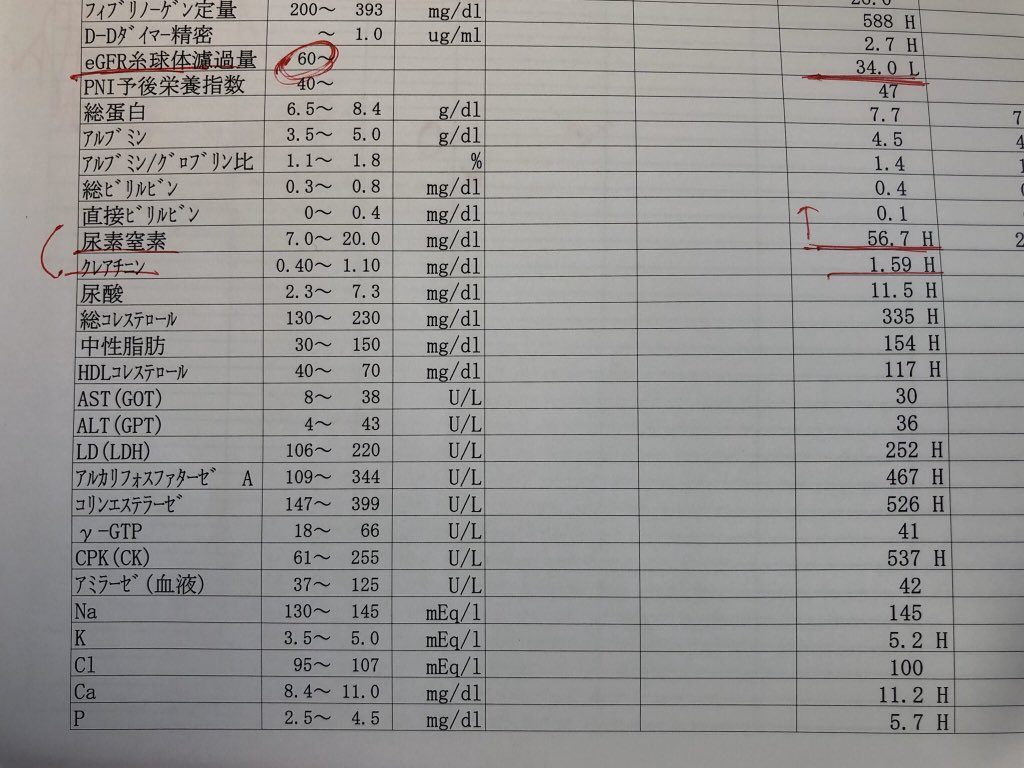 フィブリノーゲン定量 200～ 393 mg/dl 588 H
D-Dダイマー精密 ～ 1.0 ug/ml 2.7 H
eGFR糸球体濾過量 60～ 34.0 L
PNI予後栄養指数 40～ 47
総蛋白 6.5～ 8.4 g/dl 7.7 7
アルブミン 3.5～ 5.0 g/dl 4.5 4
アルブミン/グロブリン比 1.1～ 1.8 % 1.4 1
総ビリルビン 0.3～ 0.8 mg/dl 0.4
直接ビリルビン 0～ 0.4 mg/dl 0.1
尿素窒素 7.0～ 20.0 mg/dl 56.7 H 2
クレアチニン 0.40～ 1.10 mg/dl 1.59 H
尿酸 2.3～ 7.3 mg/dl 11.5 H
総コレステロール 130～ 230 mg/dl 335 H
中性脂肪 30～ 150 mg/dl 154 H
HDLコレステロール 40～ 70 mg/dl 117 H
AST(GOT) 8～ 38 U/L 30
ALT(GPT) 4～ 43 U/L 36
LD(LDH) 106～ 220 U/L 252 H
アルカリフォスファターゼ A 109～ 344 U/L 467 H
コリンエステラーゼ 147～ 399 U/L 526 H
γ-GTP 18～ 66 U/L 41
CPK(CK) 61～ 255 U/L 537 H
アミラーゼ(血液) 37～ 125 U/L 42
Na 130～ 145 mEq/l 145
K 3.5～ 5.0 mEq/l 5.2 H
Cl 95～ 107 mEq/l 100
Ca 8.4～ 11.0 mg/dl 11.2 H
P 2.5～ 4.5 mg/dl 5.7 H